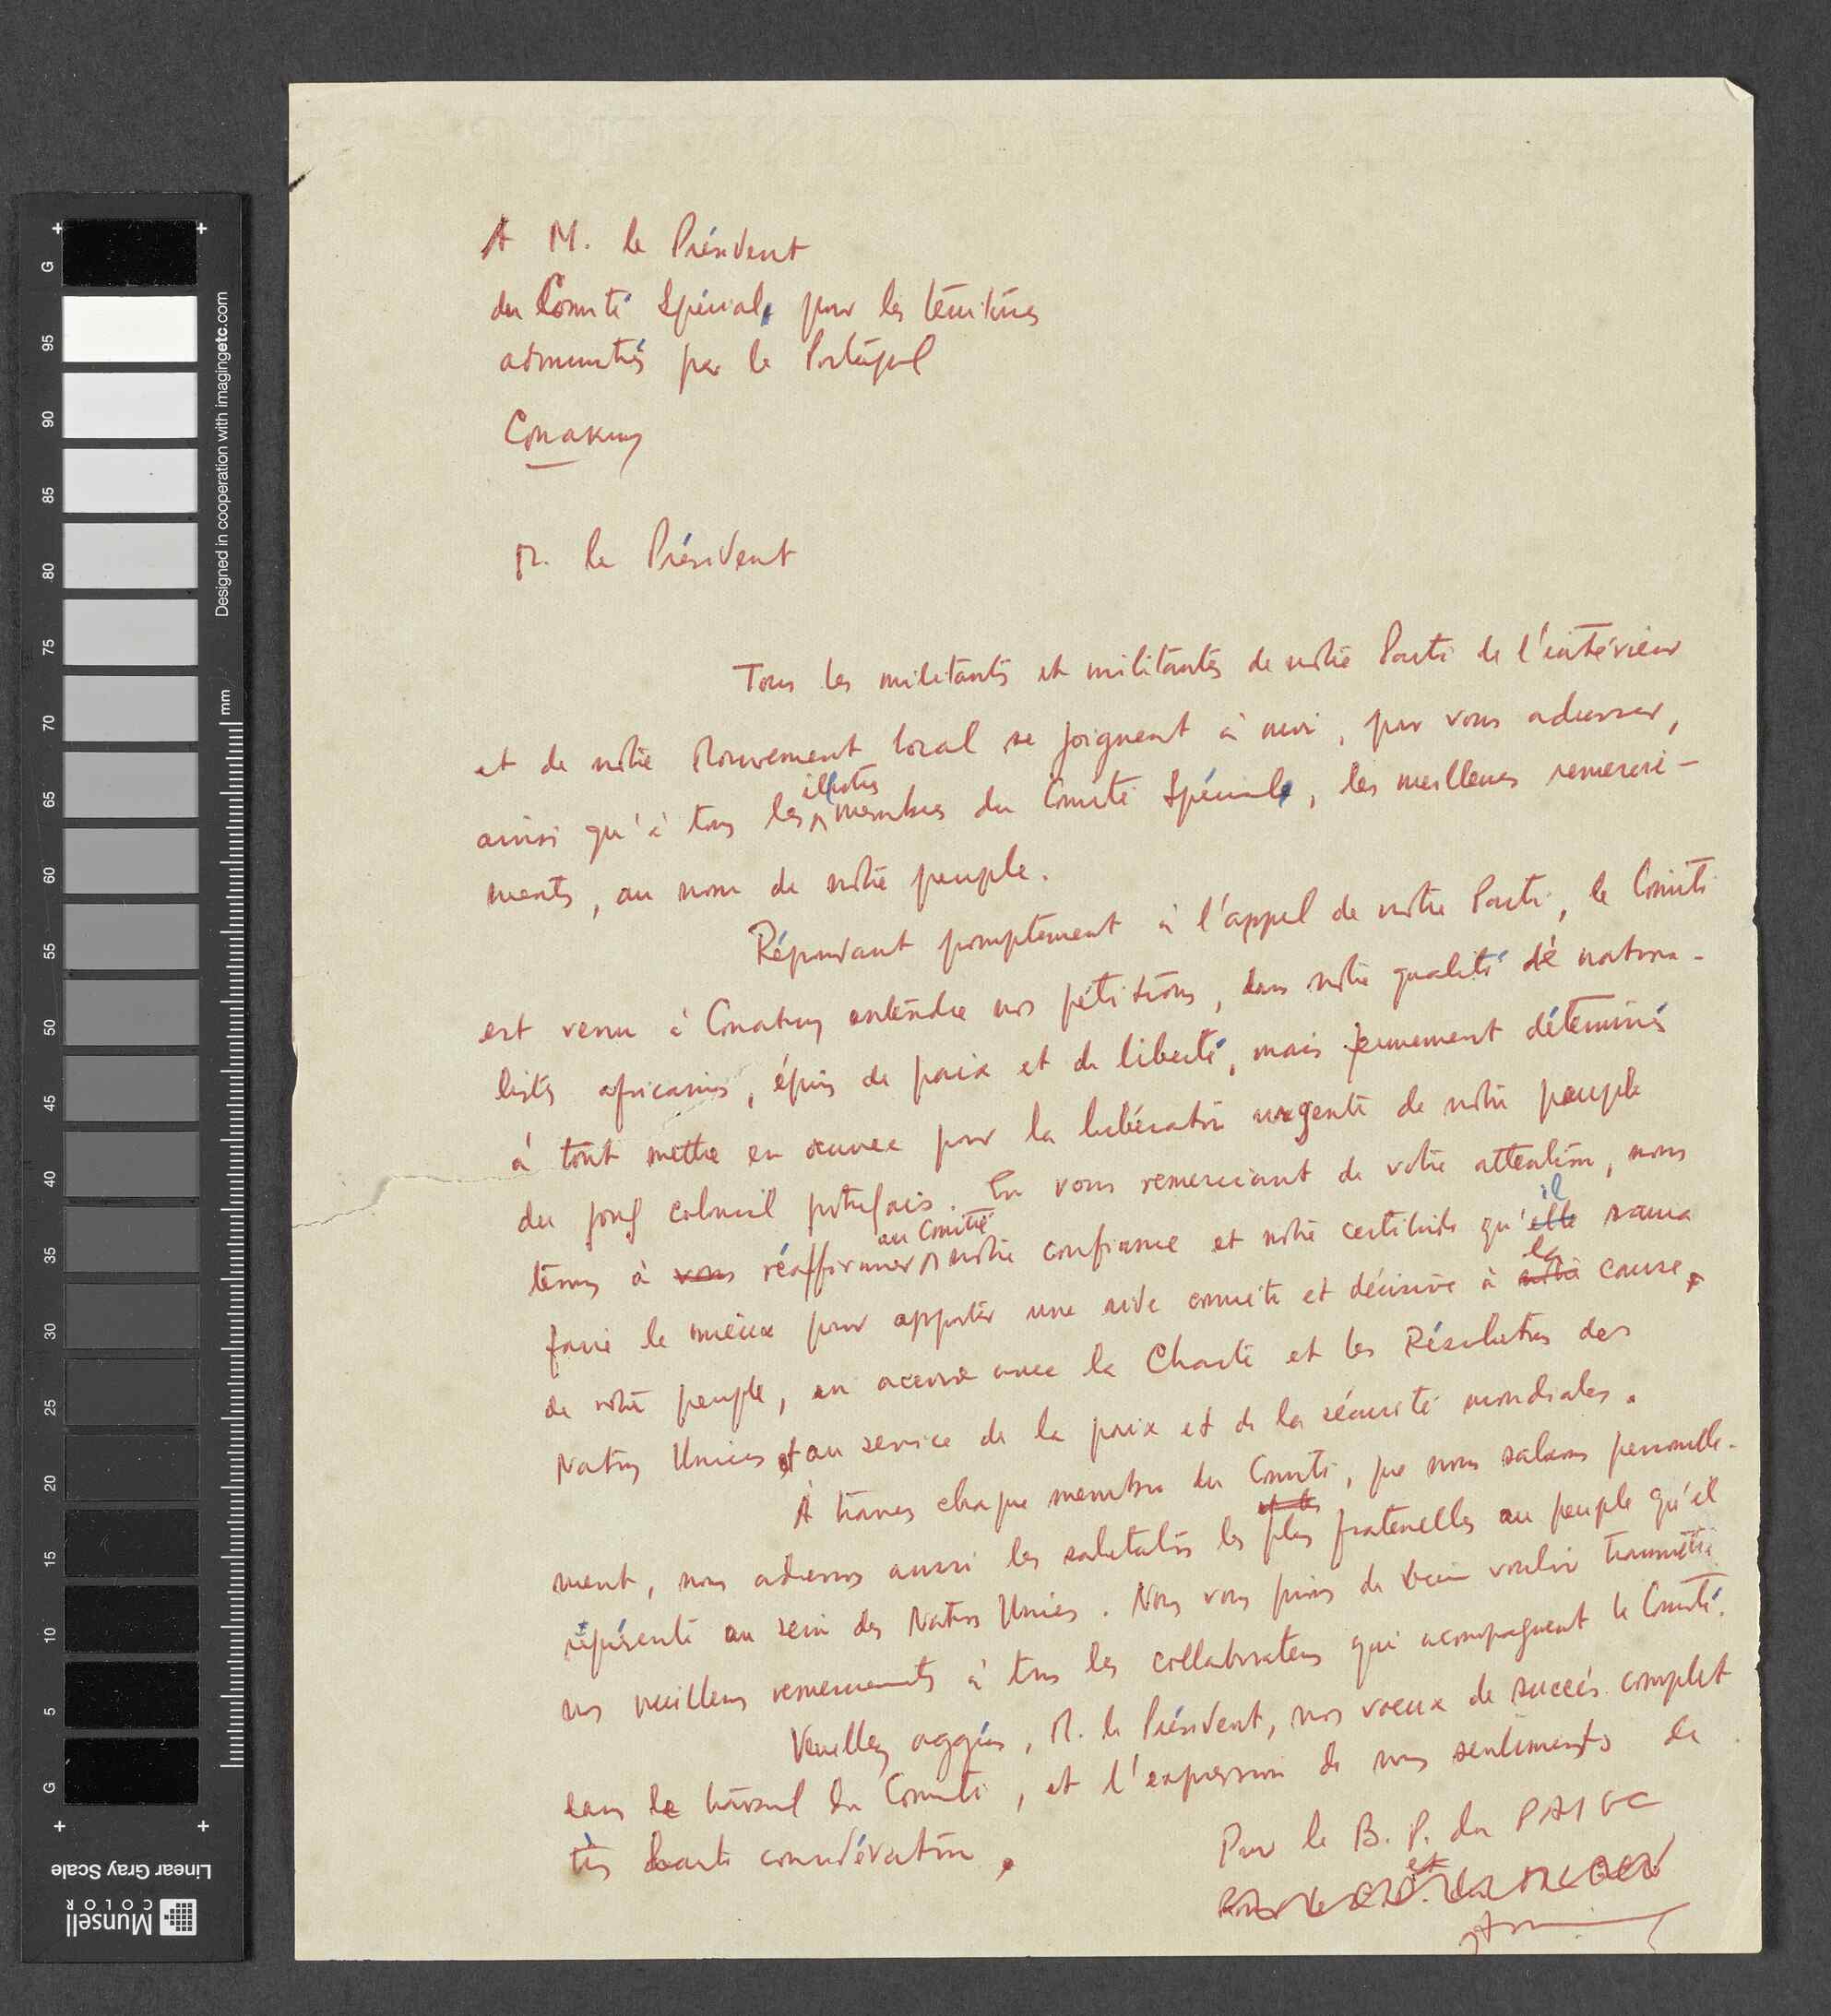 A M. le Président
du Comité Spécial, pour les territoires
administrés par le Portugal
Conakry
M. le Président
Tous les militants et militantes de notre Parti de l'intérieur
et de notre Mouvement local se joignent à moi, pour vous adresser,
ainsi qu'à tous les illustres membres du Comité Spécial, les meilleurs remercie-
ments, au nom de notre peuple.
Répondant promptement à l'appel de notre Parti, le Comité
est venu à Conakry entendre nos pétitions, dans notre qualité de nationa-
listes africains, épris de paix et de liberté, mais fermement déterminés
à tout mettre en oeuvre pour la libération urgente de notre peuple
du joug colonial portugais. En vous remerciant de votre attention, nous
tenons à vous réaffirmer au Comité notre confiance et notre certitude qu'elle il saura
faire le mieux pour apporter une aide concrète et décisive à notre la cause
de notre peuple, en accord avec la Charte et les Résolutions des
Nations Unies et au service de la paix et de la sécurité mondiales.
À travers chaque membre du Comité, que nous saluons personnelle-
ment, nous adressons aussi les salutations les plus fraternelles au peuple qu'il
représente au sein des Nations Unies. Nous vous prions de bien vouloir transmettre
nos meilleurs remerciements à tous les collaborateurs qui acompagnent le Comité.
Veuillez aggréer, M. le Président, nos voeux de succés complet
dans le travail du Comité, et l'expression de nos sentiments de
très haute considération.
Pour le B. P. du PAIGC
et